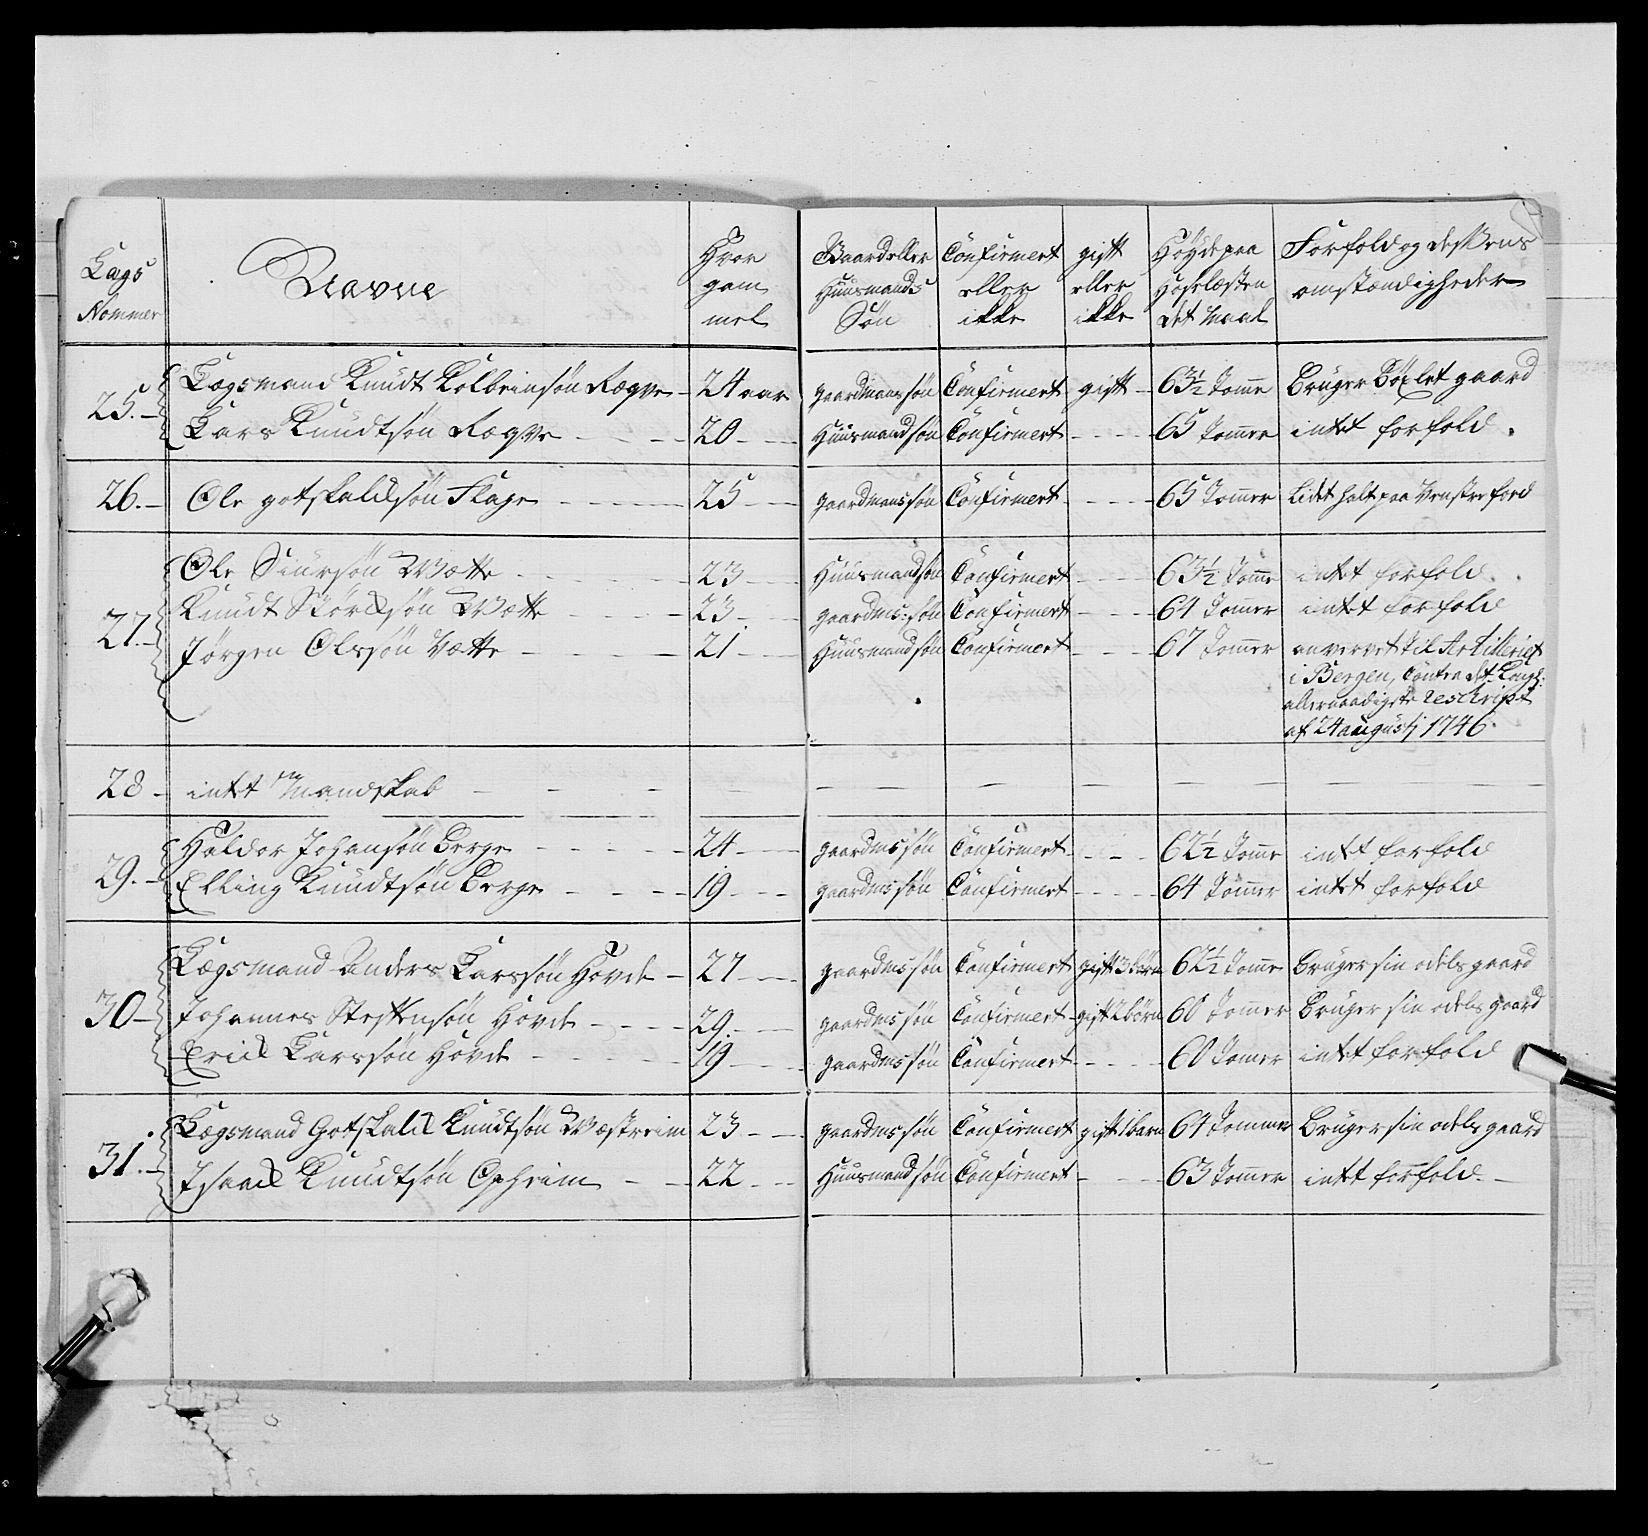 Lægs Nommer | Navne | Hvor gam mel | Gaard eller Huusmands Søn | Confirmert eller ikke | gift eller ikke | Høyde paa Hoselæsten det Maal | Forfold og des Væns omstændigheder
25.– Lægsmand Knudt Kolbeinsøn Røgve – 24 aar gaardmans søn Confirmert gift – 63½ Tomme Bruger Bøxlet gaard
Lars Knudtsøn Røgve – – – 20 – – Huusmand søn Confirmert – – – 65 Tommer intet forfold.
26.– Ole gotskalksøn Flage – – – 25 – – gaardmans søn Confirmert – – – 65 Tommer Lidet halt paa Venstre foed
27.– Ole Siursøn Wætte – – – 23 – – Huusmand søn Confirmert – – – 63½ Tomme intet forfold.
Knudt Størksøn Wætte – – – 23 – – gaardms: søn Confirmert – – – 64 Tommer intet forfold
Jørgen Olssøn Vætte – – – 21 – – Huusmand søn Confirmert – – – 67 Tommer anvervet til Artilleriet
i Bergen, Contra det Kongl:
allernaadigste rescript
af 24 augustj 1746.
28 – intet Mandskab – – –
29.– Haldor Johansøn Berge – – – 24 – – gaardms søn Confirmert – – – 62½ Tomme intet forfold
Elling Knudtsøn Berge – – – 19 – – gaardms søn Confirmert – – – 64 Tommer intet forfold
30 – Lægsmand Anders Larssøn Hovde – 27 – – gaardms søn Confirmert gift 3 børn 62½ Tomme Bruger sin odels gaard
Johannes Steffensøn Hovde – – – 29. – – gaardms søn Confirmert – gift 2 børn 60 Tommer Bruger sin odels gaard
Erick Larssøn Hovde – – – 19 – – gaardms søn Confirmert – – – 60 Tomer intet forfold
31.– Lægsmand Gotskalk Knudtsøn Wæstreim 23 – – gaardms søn Confirmert gift 1 barn 64 Tommer Bruger sin odels gaard
Isaack Knudtsøn Opheim – – 22 – – Huusmand søn Confirmert – – – 63 Tommer intet forfold. –